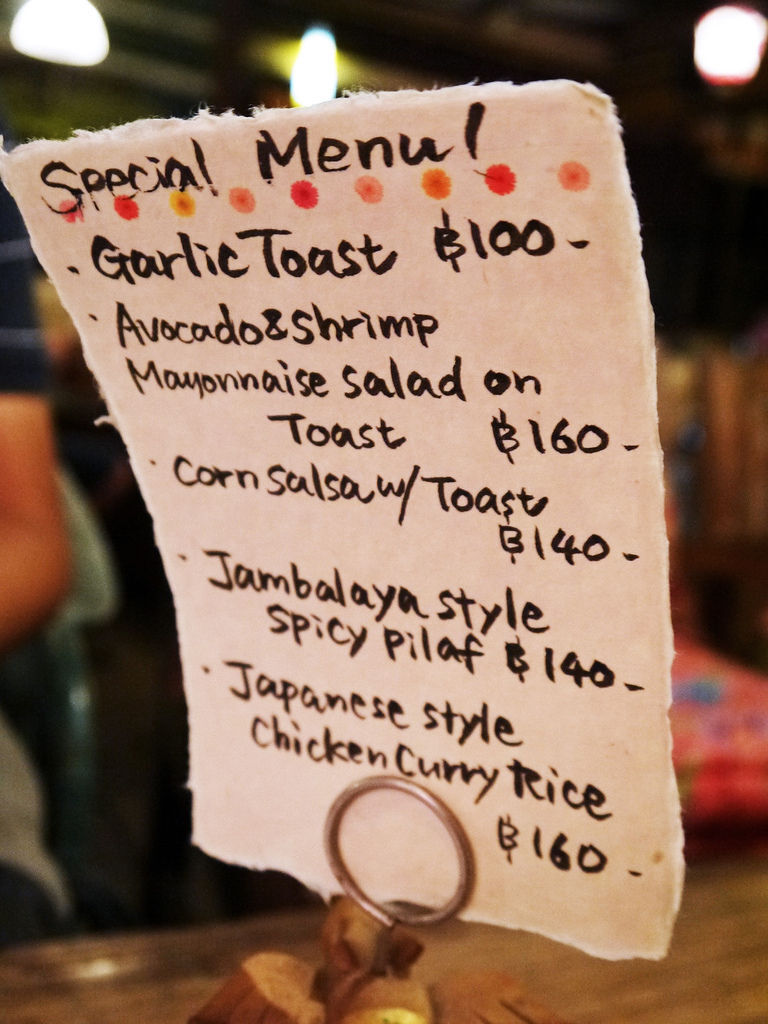 Special Menu!
· Garlic Toast ฿100-
· Avocado & Shrimp
Mayonnaise salad on
Toast ฿160-
· Corn Salsa w/ Toast
฿140-
· Jambalaya style
spicy pilaf ฿140-
· Japanese style
Chicken Curry Rice
฿160-